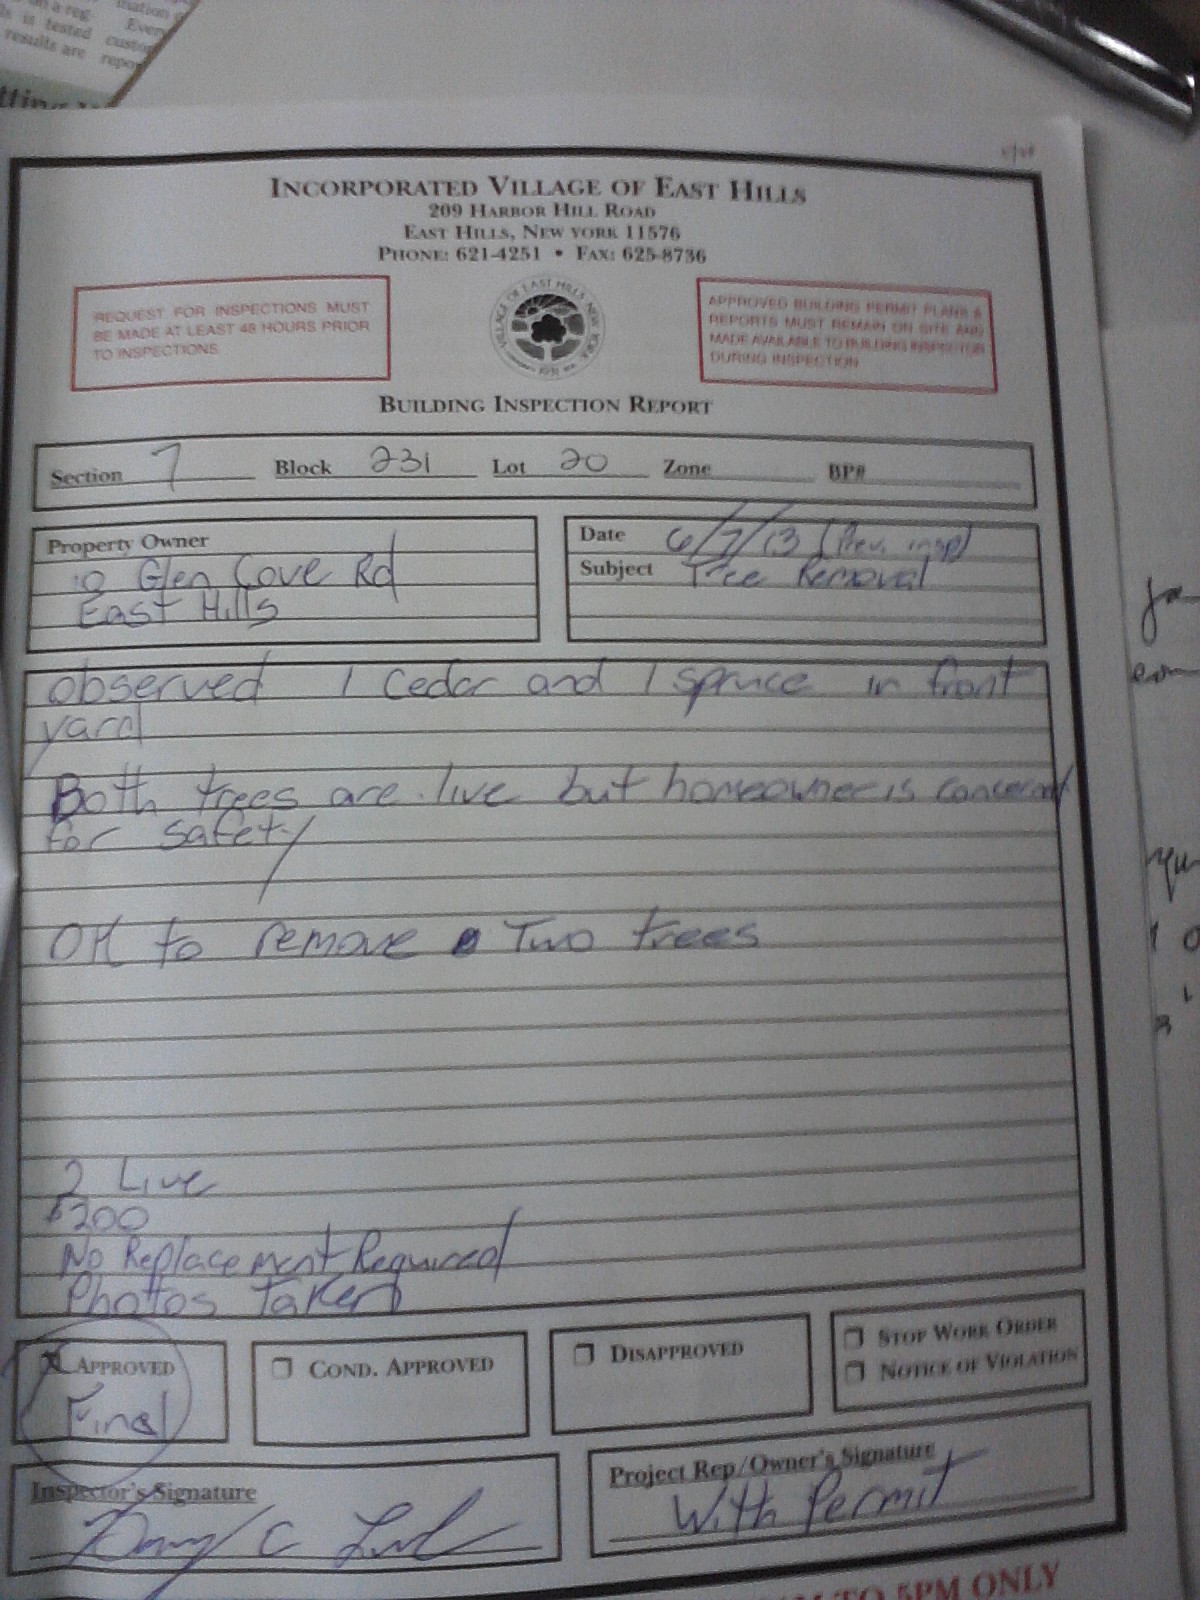 results are
INCORPORATED VILLAGE OF EAST HILLS
209 HARBOR HILL ROAD
EAST HILLS, NEW YORK 11576
PHONE: 621-4251 • FAX: 625-8736
REQUEST FOR INSPECTIONS MUST
BE MADE AT LEAST 48 HOURS PRIOR
TO INSPECTIONS
VILLAGE OF EAST HILLS NEW YORK
1931
APPROVED BUILDING PERMIT PLANS &
REPORTS MUST REMAIN ON SITE AND
MADE AVAILABLE TO BUILDING INSPECTOR
DURING INSPECTION
BUILDING INSPECTION REPORT
Section 7 Block 231 Lot 20 Zone BP#
Property Owner
10 Glen Cove Rd
East Hills
Date 6/7/13 (Prev. insp)
Subject Tree Removal
observed 1 Cedar and 1 spruce in front
yard
Both trees are live but homeowner is concerned
for safety
OK to remove Two trees
2 Live
$200
No Replacement Required
Photos Taken
X APPROVED
Final
COND. APPROVED
DISAPPROVED
STOP WORK ORDER
NOTICE OF VIOLATION
Inspector's Signature
Project Rep/Owner's Signature
With Permit
TO 5PM ONLY